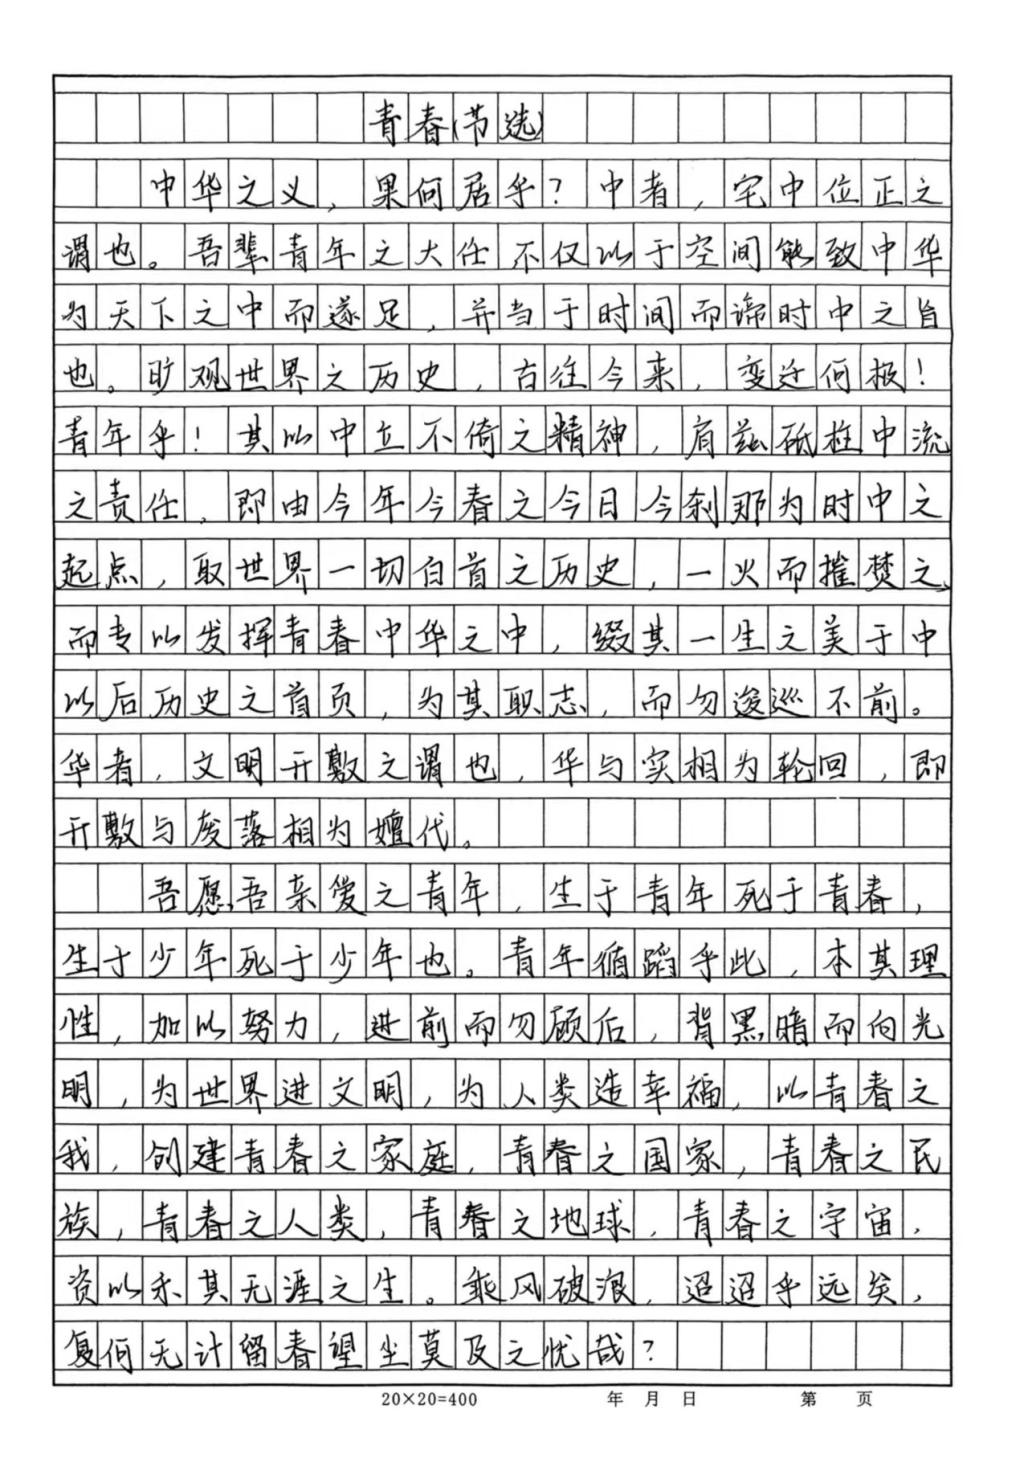 青春(节选)
中华之义，果何居乎？中者，宅中位正之
谓也。吾辈青年之大任不仅以于空间能致中华
为天下之中而遂足，并当于时间而谛时中之旨
也。旷观世界之历史，古往今来，变迁何极！
青年乎！其以中立不倚之精神，肩兹砥柱中流
之责任，即由今年今春之今日今刹那为时中之
起点，取世界一切白首之历史，一火而摧焚之、
而专以发挥青春中华之中，缀其一生之美于中
以后历史之首页，为其职志，而勿逡巡不前。
华者，文明开敷之谓也，华与实相为轮回，即
开敷与废落相为嬗代。
吾愿吾亲爱之青年，生于青年死于青春，
生于少年死于少年也。青年循蹈乎此，本其理
性，加以努力，进前而勿顾后，背黑暗而向光
明，为世界进文明，为人类造幸福，以青春之
我，创建青春之家庭，青春之国家，青春之民
族，青春之人类，青春之地球，青春之宇宙，
资以乐其无涯之生。乘风破浪，迢迢乎远矣，
复何无计留春望尘莫及之忧哉？
20×20=400 年 月 日 第 页